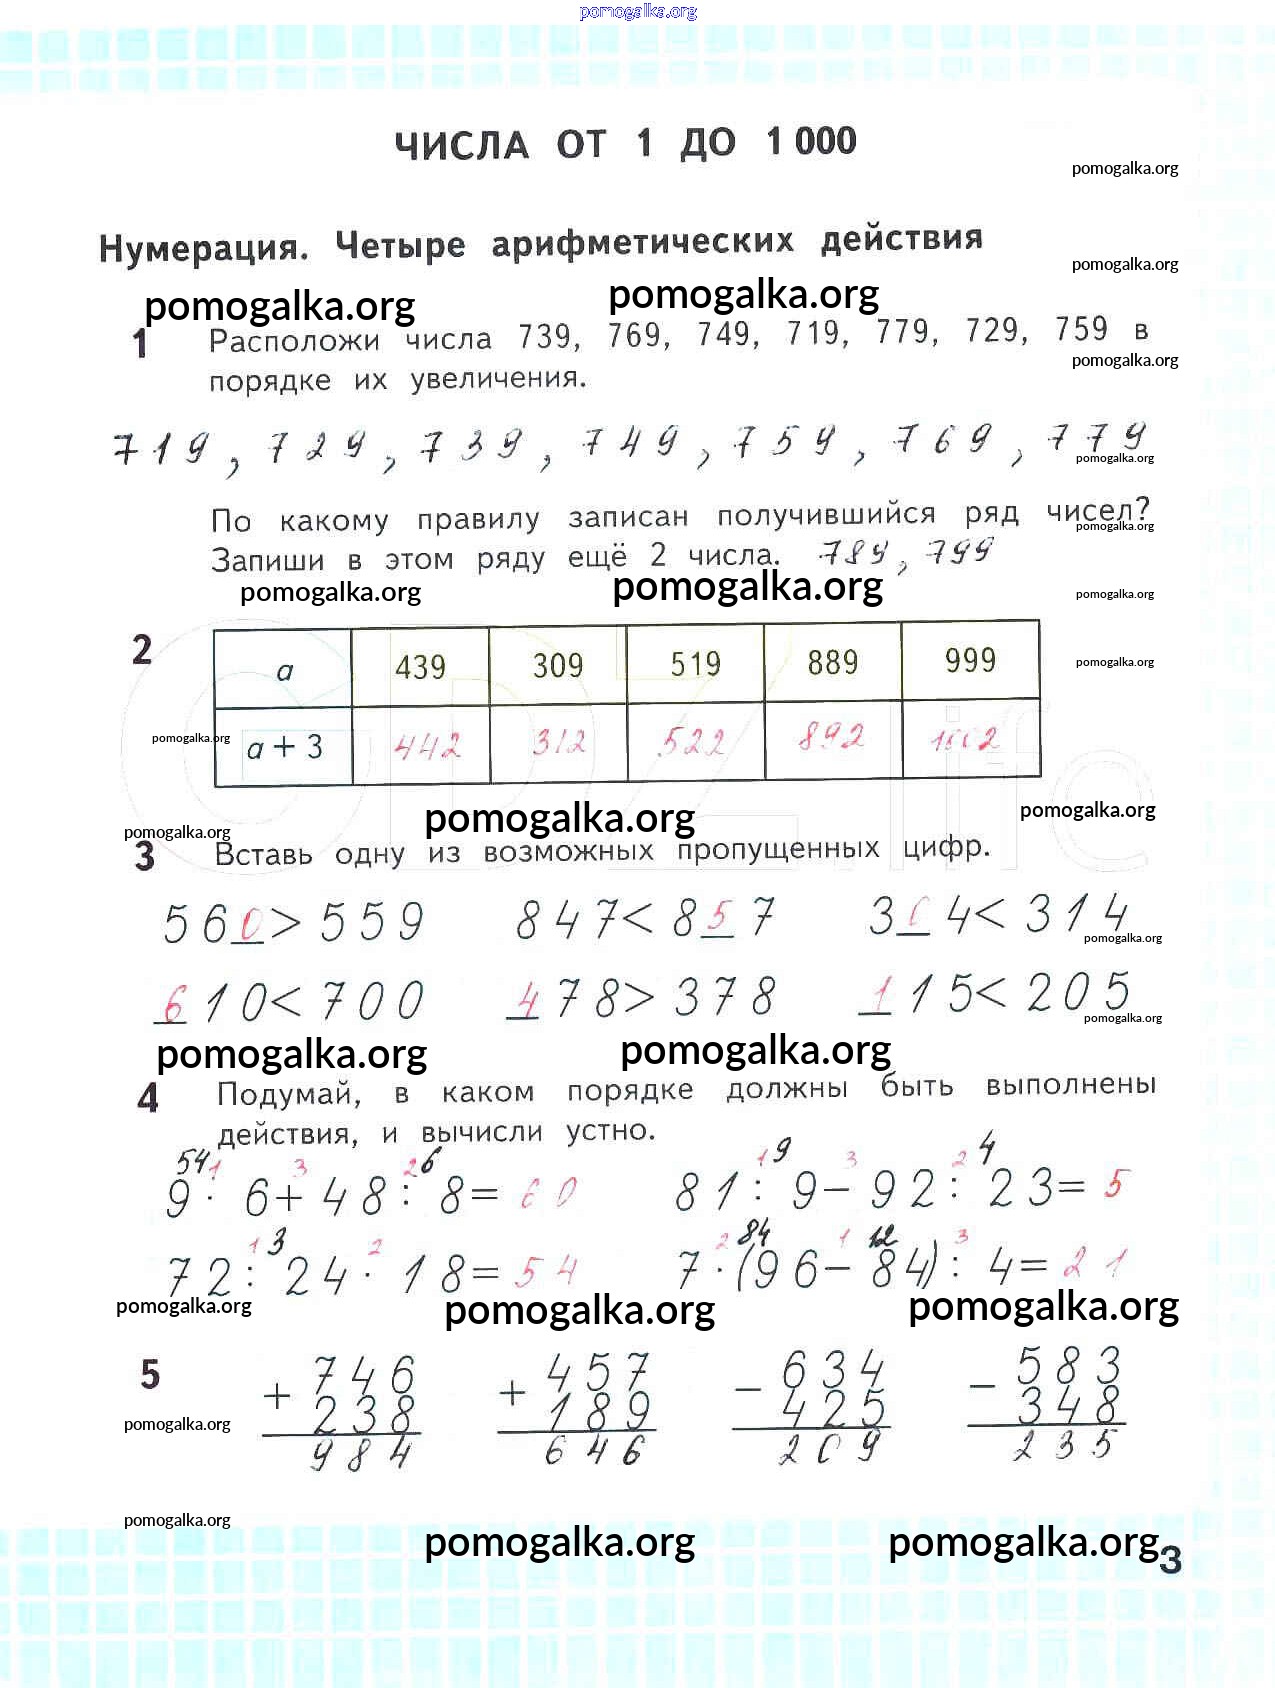 pomogalka.org
ЧИСЛА ОТ 1 ДО 1 000
pomogalka.org
Нумерация. Четыре арифметических действия
pomogalka.org
pomogalka.org pomogalka.org
1 Расположи числа 739, 769, 749, 719, 779, 729, 759 в
pomogalka.org
порядке их увеличения.
719, 729, 739, 749, 759, 769, 779
pomogalka.org
По какому правилу записан получившийся ряд чисел?
pomogalka.org
Запиши в этом ряду ещё 2 числа. 789, 799
pomogalka.org pomogalka.org pomogalka.org
2 a 439 309 519 889 999
pomogalka.org
pomogalka.org a + 3 442 312 522 892 1002
pomogalka.org pomogalka.org
pomogalka.org
3 Вставь одну из возможных пропущенных цифр.
560 > 559 847 < 857 304 < 314
pomogalka.org
610 < 700 478 > 378 115 < 205
pomogalka.org
pomogalka.org pomogalka.org
4 Подумай, в каком порядке должны быть выполнены
действия, и вычисли устно.
54 1 3 2 6 1 9 3 2 4
9 · 6 + 48 : 8 = 60 81 : 9 − 92 : 23 = 5
1 3 2 2 84 1 12 3
72 : 24 · 18 = 54 7 · (96 − 84) : 4 = 21
pomogalka.org pomogalka.org pomogalka.org
5 + 746 + 457 − 634 − 583
238 189 425 348
pomogalka.org
984 646 209 235
pomogalka.org
pomogalka.org pomogalka.org
3